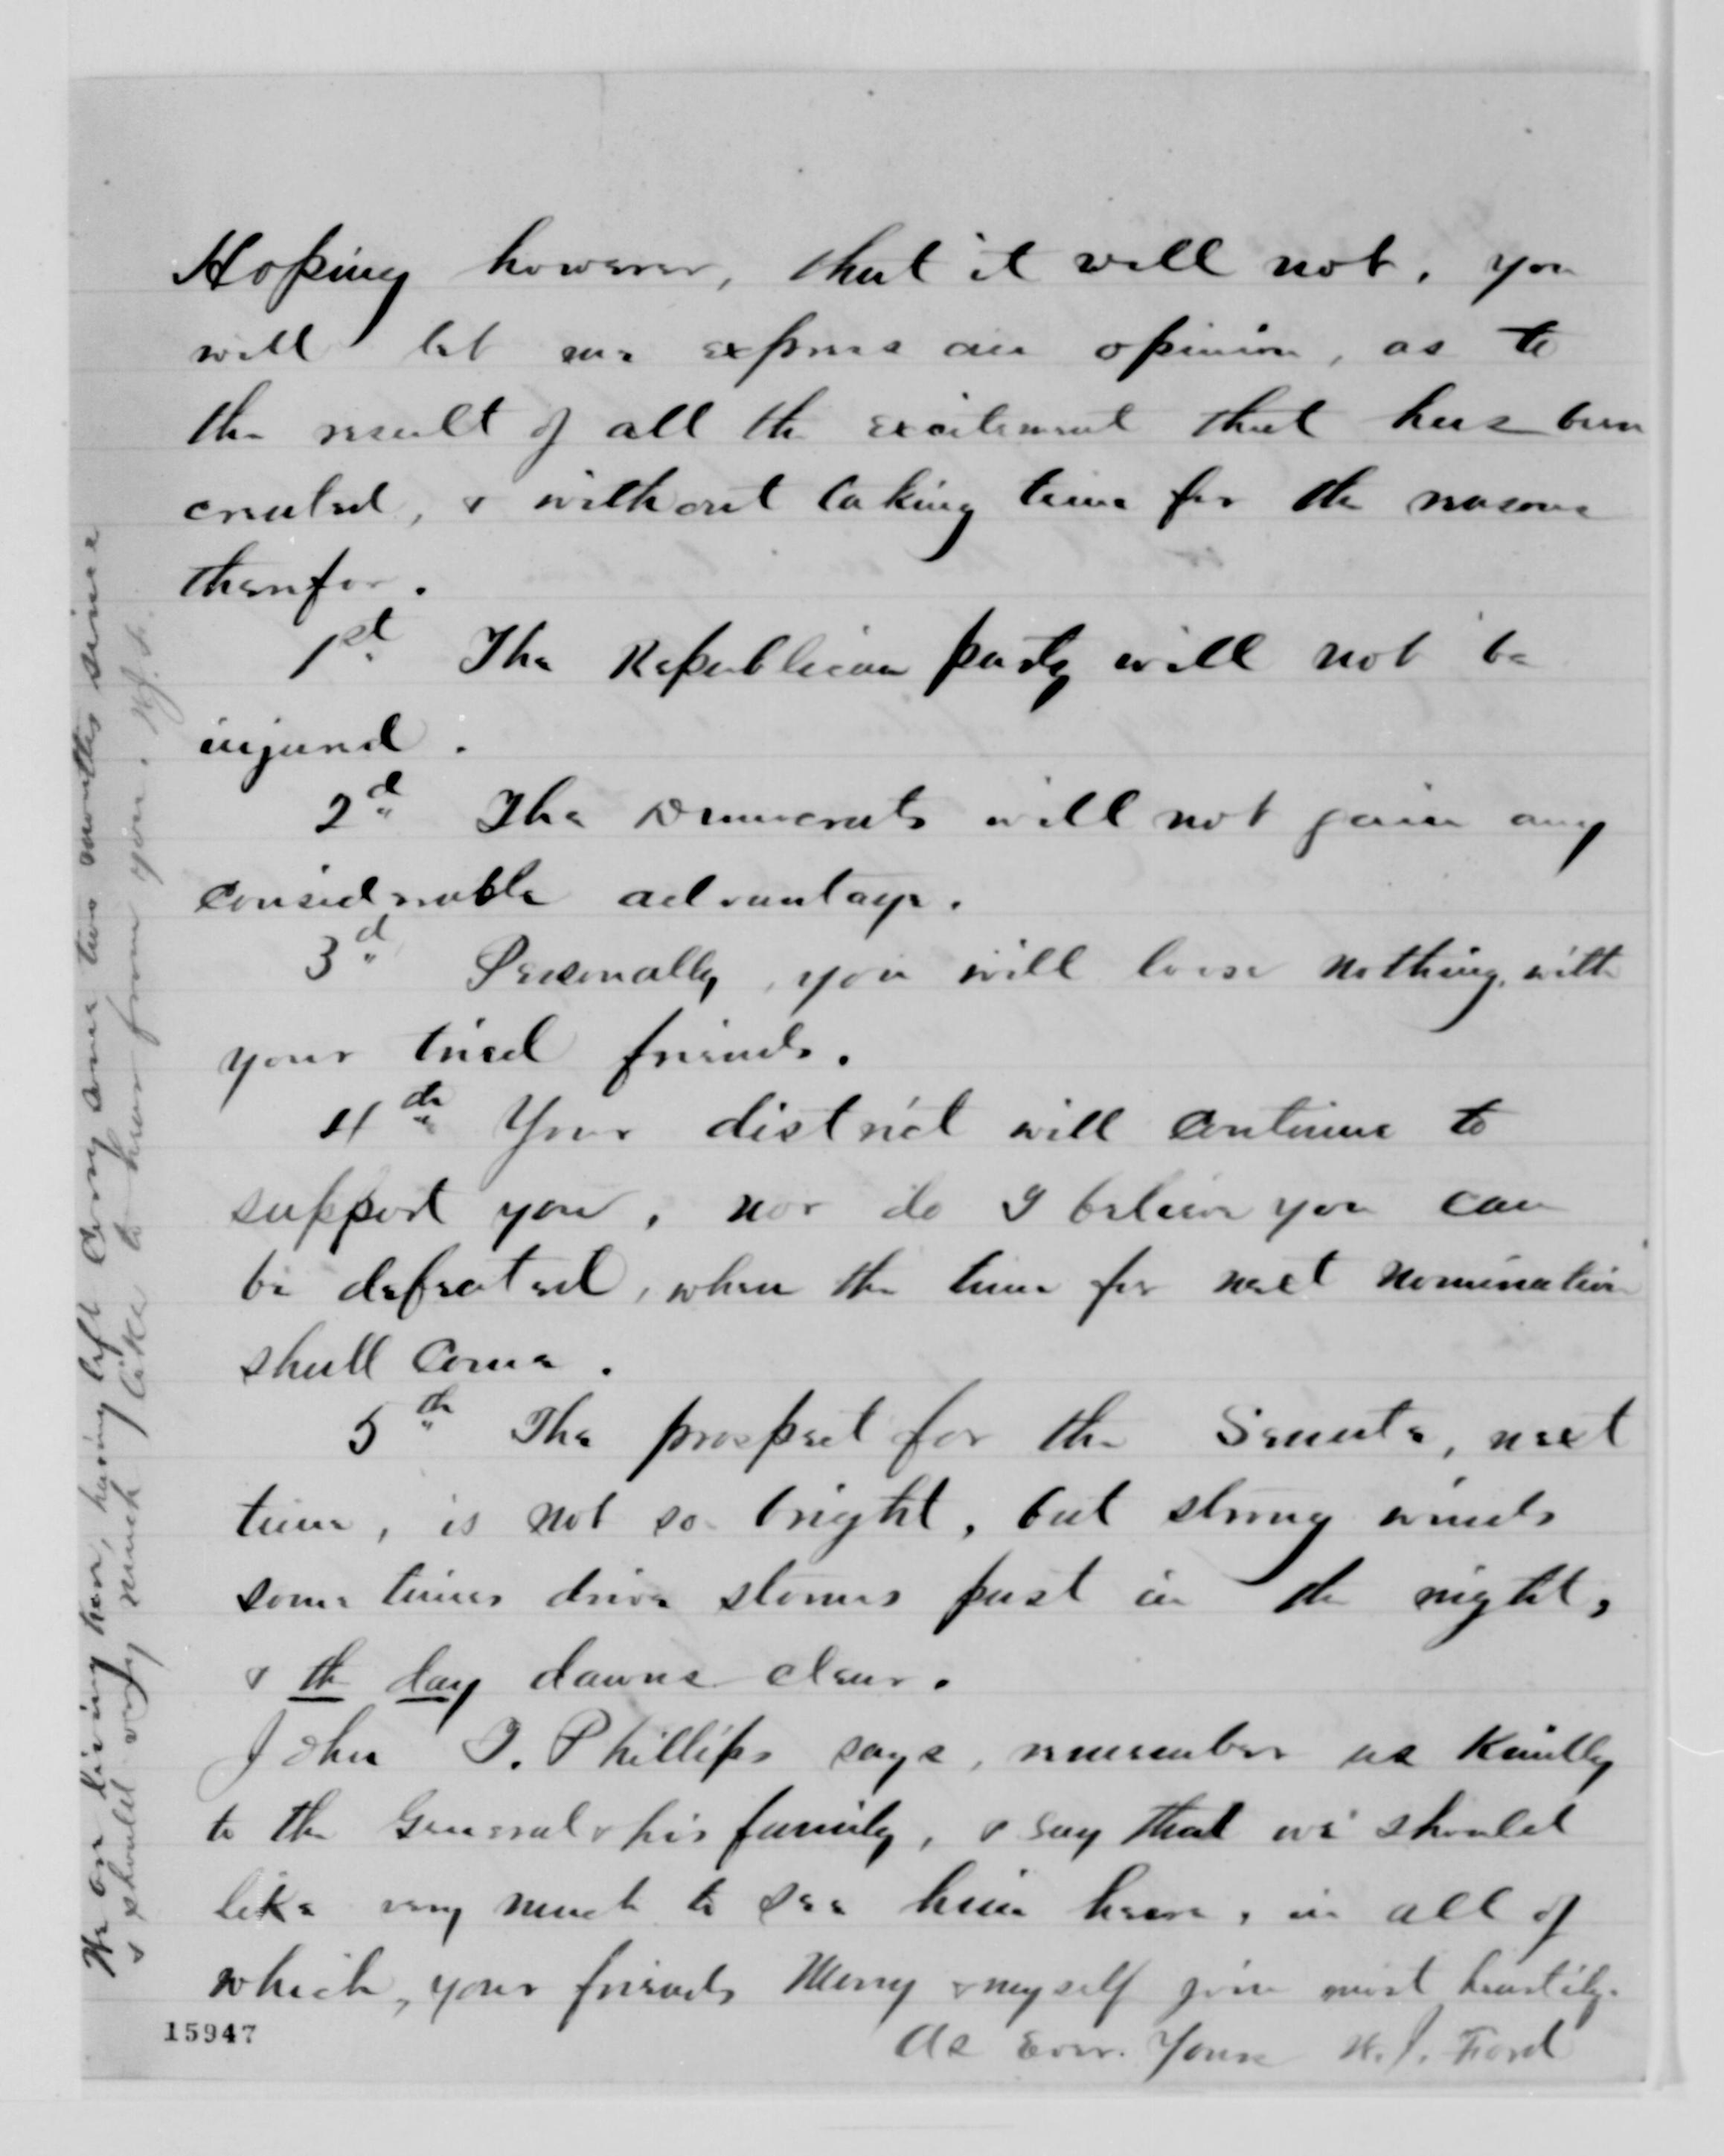 Hoping however, that it will not, you
will let me express an opinion, as to
the result of all the excitement that has been
created, & without taking time for the reasons
therefor.
1st The Republican party will not be
injured.
2d The Democrats will not gain any
considerable advantage.
3d Personally, you will loose nothing, with
your tried friends.
4th Your district will continue to
support you, nor do I believe you can
be defeated, when the time for next nomination
shall come.
5th The prospect for the Senate, next
time, is not so bright, but strong winds
some times drive storms past in the night,
& the day dawns clear.
John T. Phillips says, remember us kindly
to the General & his family, & say that we should
like very much to see him here, in all of
which, your friends Mary & myself join most heartily.
As Ever. Yours W. J. Ford
15947
We are living here, having left Corry some two months since
& should very much like to hear from you. W.J.F.